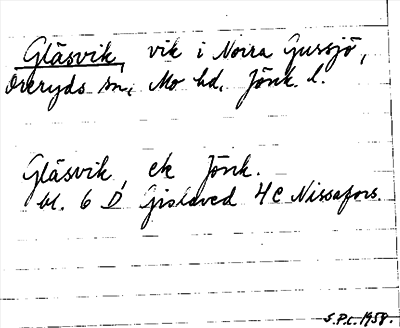 Gläsvik, vik i Norra Gussjö,
Öreryds sn, Mo hd, Jönk. l.
Gläsvik, ek Jönk.
bl. 6 D Gislaved 4 c Nissafors.
S.P.C. 1958.